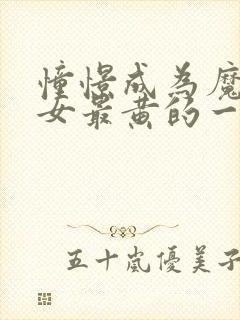 憧憬成為魔
女最黄的一
五十嵐優美子